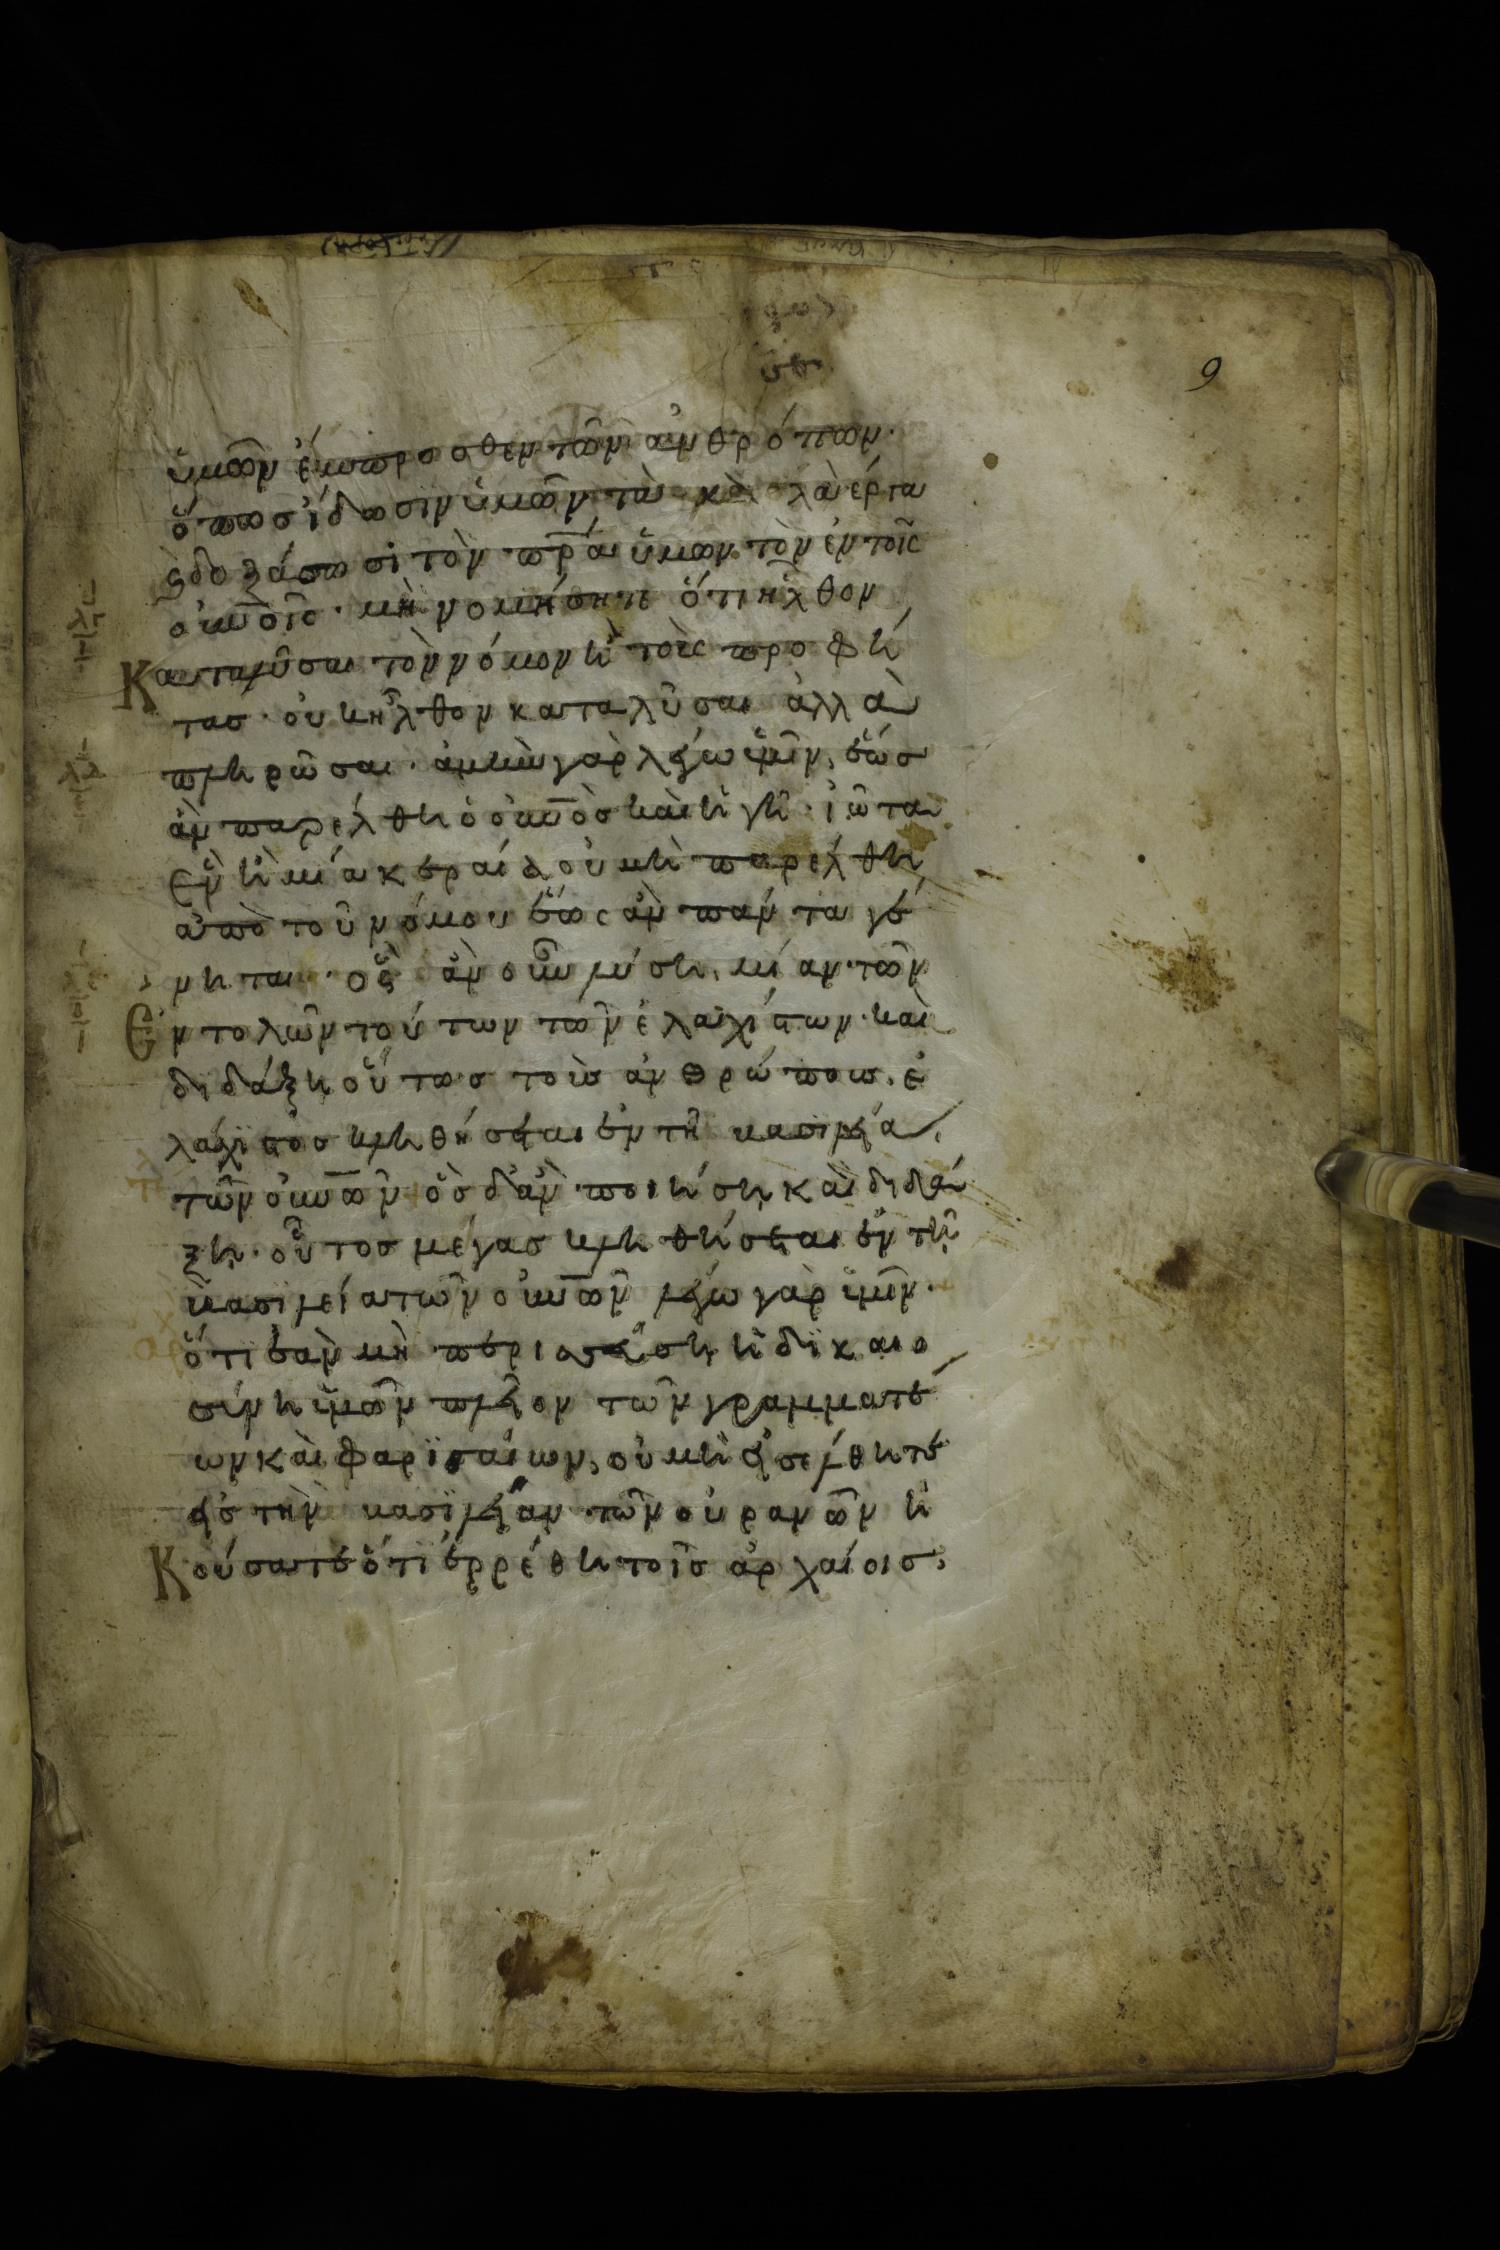 9
ὑμῶν ἔμπροσθεν τῶν ἀνθρόπων·
ὅπωσ ἴδωσϊν ὑμῶν τὰ καλὰ έργα
ϗ δοξάσωσι τὸν πρ̅α ὑμων τὸν ἐν τοῖς
οὐνοῖς· μὴ νομήσητε ὅτι ἦλθον
Καταλῦσαι τὸν νόμον ἢ τοὺς προφή
τασ· οὐκ ἦλθον καταλῦσαι ἀλλὰ
πληρῶσαι· ἀμὴν γὰρ λέγω ὑμῖν, ἕωσ
ἂν παρέλθη ὁ οὐνὸσ καὶ ἡ γῆ· ἰῶτα
ἓν ἢ μία κεραία οὐ μὴ παρέλθη
ἀπὸ τοῦ νόμου ἕως ἂν πάντα γέ
νηται· ὃς ἂν οὖν λύση, μίαν τῶν
Ἐντολῶν τούτων τῶν ἐλαχίστων· καὶ
διδάξη οὕτωσ τοὺσ ἀνθρώπουσ, ἐ
λάχϊστοσ κληθήσεται ἐν τῆ βασϊλεία,
τῶν οὐνῶν ὃσ δ' ἂν ποιήση καὶ διδά
ξη· οὗτοσ μέγασ κληθήσεται ἐν τῆ
βασϊλεία τῶν οὐνῶν λέγω γὰρ ὑμῖν·
ὅτι ἐὰν μὴ περισσεύση ἡ δϊκαιο
σύνη ὑμῶν πλεῖον τῶν γραμματέ
ων καὶ φαρϊσαίων, οὐ μὴ εἰσέλθητε
εἰσ τὴν βασϊλείαν τῶν οὐρανῶν ἠ
Κούσατε ὅτϊ ἐρρέθη τοῖσ ἀρχαίοισ,